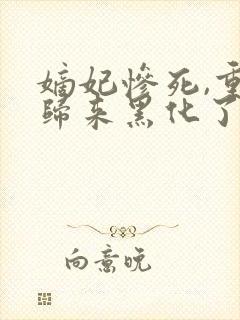 嫡妃惨死,重
归来黑化了
向意晚